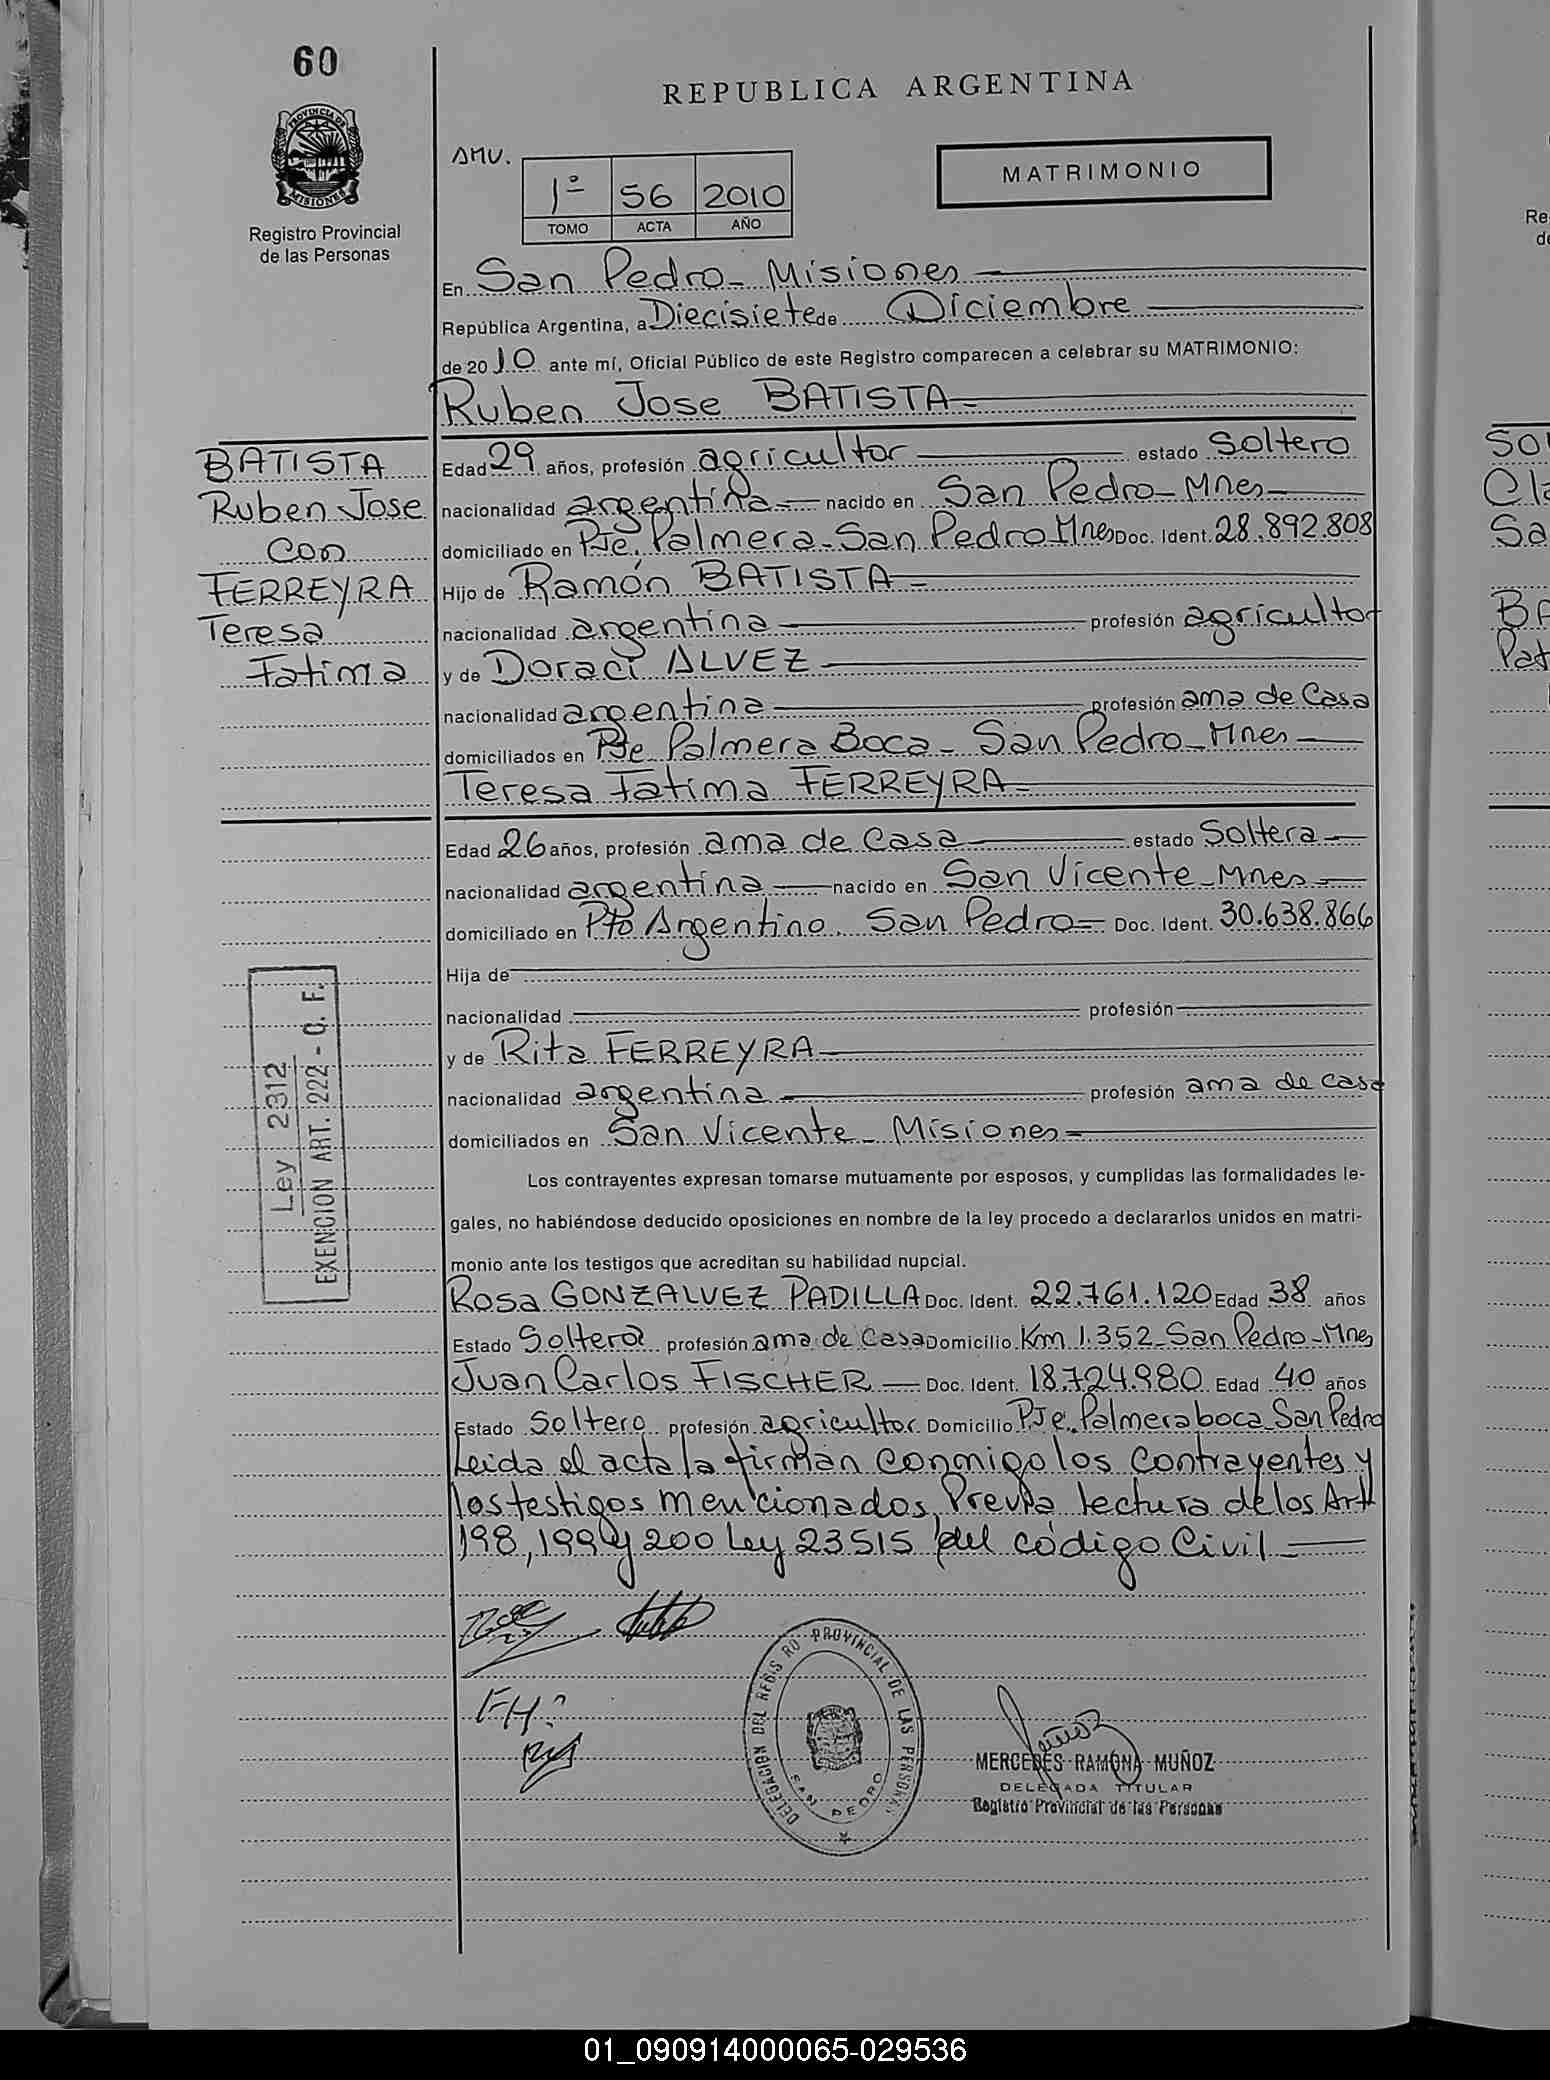 60
REPUBLICA ARGENTINA
PROVINCIA DE MISIONES
Registro Provincial
de las Personas
AMU.
1º 56 2010
TOMO ACTA AÑO
MATRIMONIO
En San Pedro - Misiones
República Argentina, a Diecisiete de Diciembre
de 2010 ante mí, Oficial Público de este Registro comparecen a celebrar su MATRIMONIO:
Ruben Jose BATISTA
BATISTA
Ruben Jose
con
FERREYRA
Teresa
Fatima
Edad 29 años, profesión agricultor estado Soltero
nacionalidad argentina nacido en San Pedro - Mnes
domiciliado en Pje. Palmera - San Pedro Mnes Doc. Ident. 28.892.808
Hijo de Ramón BATISTA
nacionalidad argentina profesión agricultor
y de Doraci ALVEZ
nacionalidad argentina profesión ama de Casa
domiciliados en Pje Palmera Boca - San Pedro - Mnes
Teresa Fatima FERREYRA
Edad 26 años, profesión ama de Casa estado Soltera
nacionalidad argentina nacido en San Vicente - Mnes
domiciliado en Pto Argentino. San Pedro Doc. Ident. 30.638.866
Hija de
nacionalidad profesión
y de Rita FERREYRA
nacionalidad argentina profesión ama de casa
domiciliados en San Vicente - Misiones
Ley 2312
EXENCION ART. 222 - C. F.
Los contrayentes expresan tomarse mutuamente por esposos, y cumplidas las formalidades le-
gales, no habiéndose deducido oposiciones en nombre de la ley procedo a declararlos unidos en matri-
monio ante los testigos que acreditan su habilidad nupcial.
Rosa GONZALVEZ PADILLA Doc. Ident. 22.761.120 Edad 38 años
Estado Soltera profesión ama de Casa Domicilio Km 1.352 - San Pedro - Mnes
Juan Carlos FISCHER Doc. Ident. 18.724.980 Edad 40 años
Estado Soltero profesión agricultor Domicilio Pje. Palmera boca San Pedro
Leida el acta la firman conmigo los contrayentes y
los testigos mencionados, Previa lectura de los Art
198, 199 y 200 Ley 23515 del código Civil
DELEGACION DEL REGISTRO PROVINCIAL DE LAS PERSONAS
SAN PEDRO
MERCEDES RAMONA MUÑOZ
DELEGADA TITULAR
Registro Provincial de las Personas
01_090914000065-029536